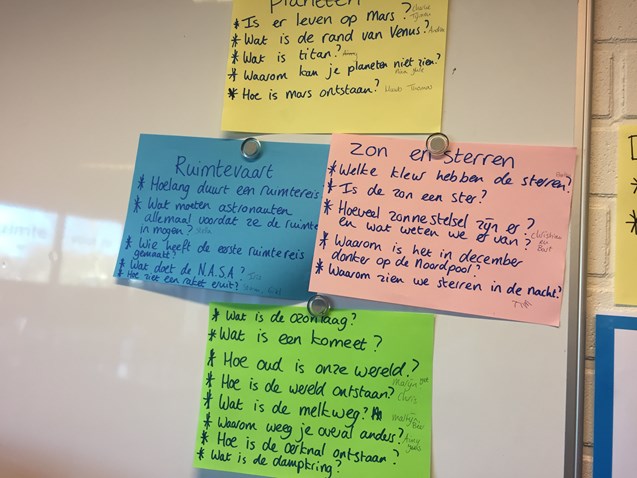 Planeten
* Is er leven op mars?
* Wat is de rand van Venus?
* Wat is titan?
* Waarom kan je planeten niet zien?
* Hoe is mars ontstaan?
Ruimtevaart
* Hoelang duurt een ruimtereis
* Wat moeten astronauten
allemaal voordat ze de ruimte
in mogen?
* Wie heeft de eerste ruimtereis
gemaakt?
* Wat doet de N.A.S.A?
* Hoe ziet een raket eruit?
Zon en sterren
* Welke kleur hebben de sterren?
* Is de zon een ster?
* Hoeveel zonnestelsel zijn er?
en wat weten we er van? Christian
en Bart
* Waarom is het in december
donker op de Noordpool?
* Waarom zien we sterren in de nacht?
* Wat is de ozonlaag?
* Wat is een komeet?
* Hoe oud is onze wereld?
* Hoe is de wereld ontstaan?
* Wat is de melkweg?
* Waarom weeg je overal anders?
* Hoe is de oerknal ontstaan?
* Wat is de dampkring?